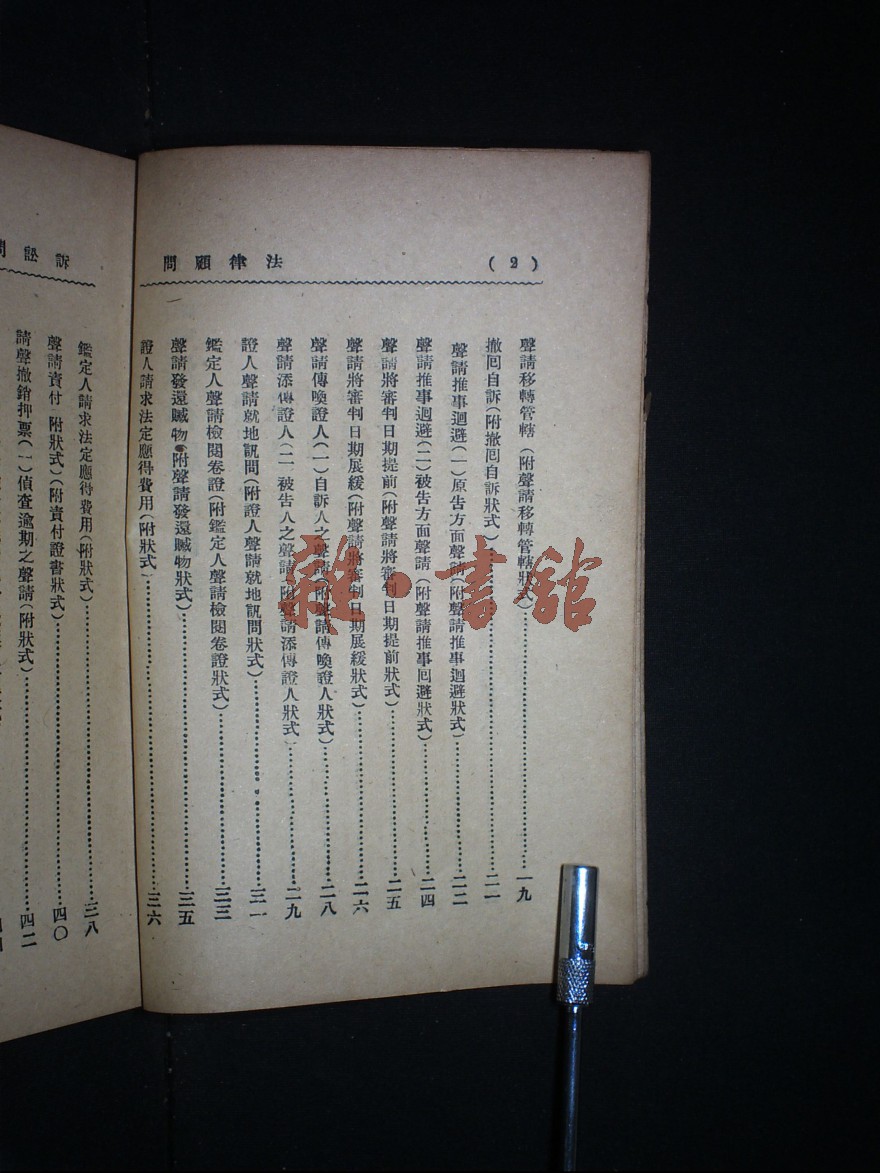 法律顧問 (2)
聲請移轉管轄(附聲請移轉管轄狀式)……一九
撤回自訴(附撤回自訴狀式)……二一
聲請推事迴避(一)原告方面聲請(附聲請推事迴避狀式)……二二
聲請推事迴避(二)被告方面聲請(附聲請推事回避狀式)……二四
聲請將審判日期提前(附聲請將審制日期提前狀式)……二五
聲請將審判日期展緩(附聲請將審制日期展緩狀式)……二六
聲請傳喚證人(一)自訴人之聲請(附聲請傳喚證人狀式)……二八
聲請添傳證人(二)被告人之聲請(附聲請添傳證人狀式)……二九
證人聲請就地訊問(附證人聲請就地訊問狀式)……三一
鑑定人聲請檢閱卷證(附鑑定人聲請檢閱卷證狀式)……三三
聲請發還贓物(附聲請發還贓物狀式)……三五
證人請求法定應得費用(附狀式)……三六
訴訟
鑑定人請求法定應得費用(附狀式)……三八
聲請責付(附狀式)(附責付證書狀式)……四〇
請聲撤銷押票(一)偵查逾期之聲請(附狀式)……四二
雜·書館